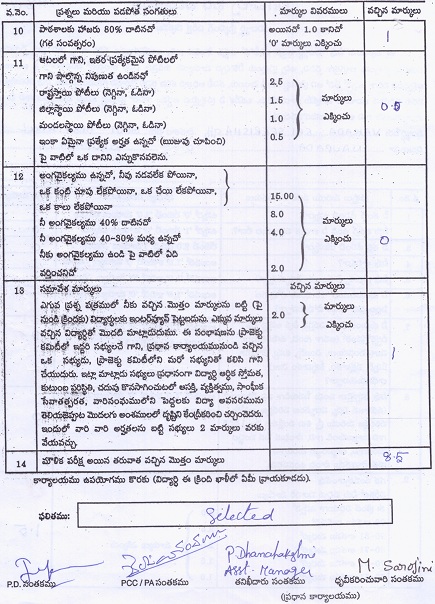 వ.నెం. ప్రశ్నలు మరియు వడపోత సంగతులు మార్కుల వివరములు వచ్చిన మార్కులు
10 పాఠశాలకు హాజరు 80% దాటినచో అయినచో 1.0 కానిచో 1
(గత సంవత్సరం) '0' మార్కులు ఎక్కించు
11 ఆటలలో గాని, ఇతర ప్రత్యేకమైన పోటీలలో
గాని పాల్గొన్న నిపుణుత ఉండినచో 2.5
రాష్ట్రస్థాయి పోటీలు (నెగ్గినా, ఓడినా) 1.5 మార్కులు 0.5
జిల్లాస్థాయి పోటీలు (నెగ్గినా, ఓడినా) 1.0 ఎక్కించు
మండలస్థాయి పోటీలు (నెగ్గినా, ఓడినా) 0.5
ఇంకా ఏమైనా ప్రత్యేక అర్హత ఉన్నచో (ఋజువు చూపించి)
పై వాటిలో ఒక దానిని ఎన్నుకొనవలెను.
12 అంగవైకల్యము ఉన్నచో, నీవు నడవలేక పోయినా,
ఒక కంటి చూపు లేకపోయినా, ఒక చేయి లేకపోయినా,
ఒక కాలు లేకపోయినా 15.00
నీ అంగవైకల్యము 40% దాటినచో 8.0 మార్కులు
నీ అంగవైకల్యము 40-30% మధ్య ఉన్నచో 4.0 ఎక్కించు 0
నీకు అంగవైకల్యము ఉండి పై వాటిలో ఏది
వర్తించనిచో 2.0
13 సమావేశ మార్కులు వచ్చిన మార్కులు
ఎగువ ప్రశ్న పత్రములో నీకు వచ్చిన మొత్తం మార్కులను బట్టి (పై
నుండి క్రిందకు) విద్యార్థులకు ఇంటర్వ్యూన్ పెట్టబడును. ఎక్కువ మార్కులు 2.0 మార్కులు
వచ్చిన విద్యార్థితో మొదటి మాట్లాడుదుము. ఈ సంభాషణను ప్రాజెక్టు ఎక్కించు
కమిటీలో ఇద్దరి సభ్యులచే గాని, ప్రధాన కార్యాలయమునుండి వచ్చిన
ఒక సభ్యుడు, ప్రాజెక్టు కమిటీలోని మరో సభ్యునితో కలిసి గాని
చేయుదురు. ఇట్లా మాట్లాడు సభ్యులు ప్రధానంగా విద్యార్థి ఆర్థిక స్తోమత, 1
కుటుంబ పరిస్థితి, చదువు కొనసాగించుటలో ఆసక్తి, వ్యక్తిత్వము, సాంఘిక
సేవాతత్పరత, వారిసంఘములోని పెద్దలకు విద్యా అవసరమును
తెలియజెప్పుట మొదలగు అంశములలో దృష్టిని కేంద్రీకరించి చర్చించెదరు.
ఇందులో వారి వారి అర్హతలను బట్టి సభ్యులు 2 మార్కులు వరకు
వేయవచ్చు.
14 మౌలిక పరీక్ష అయిన తరువాత వచ్చిన మొత్తం మార్కులు 8.5
కార్యాలయము ఉపయోగము కొరకు (విద్యార్థి ఈ క్రింది ఖాళీలో ఏమీ వ్రాయకూడదు).
ఫలితము: Selected
P Dhanalakshmi
Asst. Manager M. Sarojini
P.D. సంతకము PCC / PA సంతకము తనిఖీదారు సంతకము ధృవీకరించువారి సంతకము
(ప్రధాన కార్యాలయము)